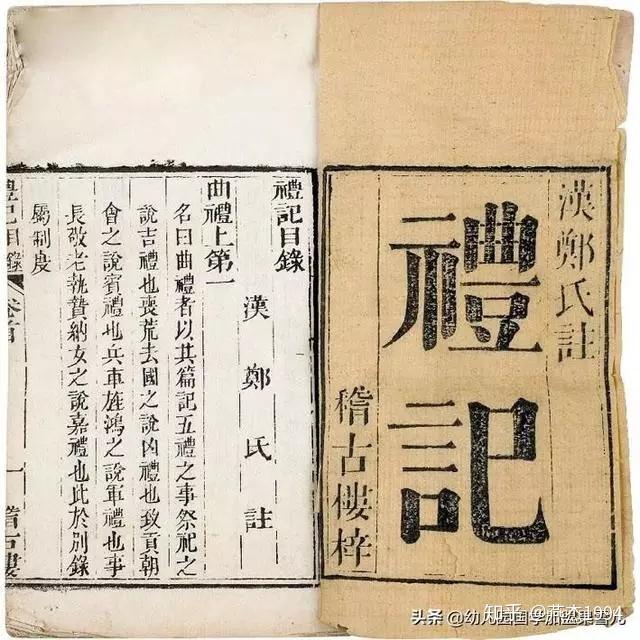 漢鄭氏註
禮記
稽古樓梓
禮記目錄
漢鄭氏註
曲禮上第一
名曰曲禮者以其篇記五禮之事祭祀之
說吉禮也喪荒去國之說凶禮也致貢朝
會之說賓禮也兵車旌鴻之說軍禮也事
長敬老執贄納女之說嘉禮也此於別錄
屬制度
禮記目錄 卷首 一 稽古樓
头条 @幼儿园国学加盟
知乎 1994